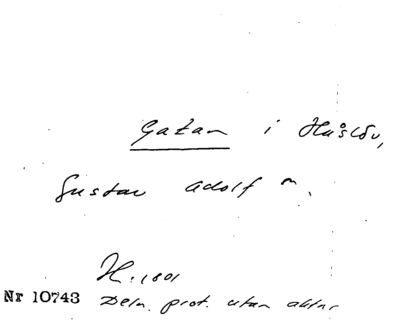 Gatan i Håslöv,
Gustav Adolf m.
H. 1801
Nr 10743 Deln. prot. utan aktnr